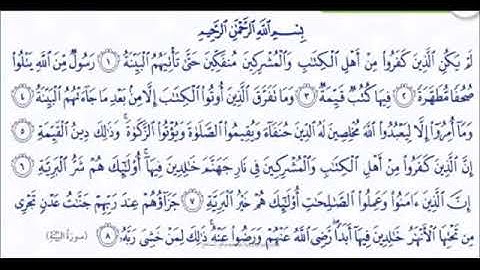 بِسْمِ اللَّهِ الرَّحْمَٰنِ الرَّحِيمِ
لَمْ يَكُنِ الَّذِينَ كَفَرُوا مِنْ أَهْلِ الْكِتَابِ وَالْمُشْرِكِينَ مُنفَكِّينَ حَتَّىٰ تَأْتِيَهُمُ الْبَيِّنَةُ ١ رَسُولٌ مِّنَ اللَّهِ يَتْلُوا
صُحُفًا مُّطَهَّرَةً ٢ فِيهَا كُتُبٌ قَيِّمَةٌ ٣ وَمَا تَفَرَّقَ الَّذِينَ أُوتُوا الْكِتَابَ إِلَّا مِنْ بَعْدِ مَا جَاءَتْهُمُ الْبَيِّنَةُ ٤
وَمَا أُمِرُوا إِلَّا لِيَعْبُدُوا اللَّهَ مُخْلِصِينَ لَهُ الدِّينَ حُنَفَاءَ وَيُقِيمُوا الصَّلَوٰةَ وَيُؤْتُوا الزَّكَوٰةَ ۚ وَذَٰلِكَ دِينُ الْقَيِّمَةِ ٥
إِنَّ الَّذِينَ كَفَرُوا مِنْ أَهْلِ الْكِتَابِ وَالْمُشْرِكِينَ فِي نَارِ جَهَنَّمَ خَالِدِينَ فِيهَا ۚ أُولَٰئِكَ هُمْ شَرُّ الْبَرِيَّةِ ٦
إِنَّ الَّذِينَ ءَامَنُوا وَعَمِلُوا الصَّالِحَاتِ أُولَٰئِكَ هُمْ خَيْرُ الْبَرِيَّةِ ٧ جَزَاؤُهُمْ عِندَ رَبِّهِمْ جَنَّاتُ عَدْنٍ تَجْرِي
مِن تَحْتِهَا الْأَنْهَارُ خَالِدِينَ فِيهَا أَبَدًا ۖ رَّضِيَ اللَّهُ عَنْهُمْ وَرَضُوا عَنْهُ ۚ ذَٰلِكَ لِمَنْ خَشِيَ رَبَّهُ ٨ (سورة البيّنة)